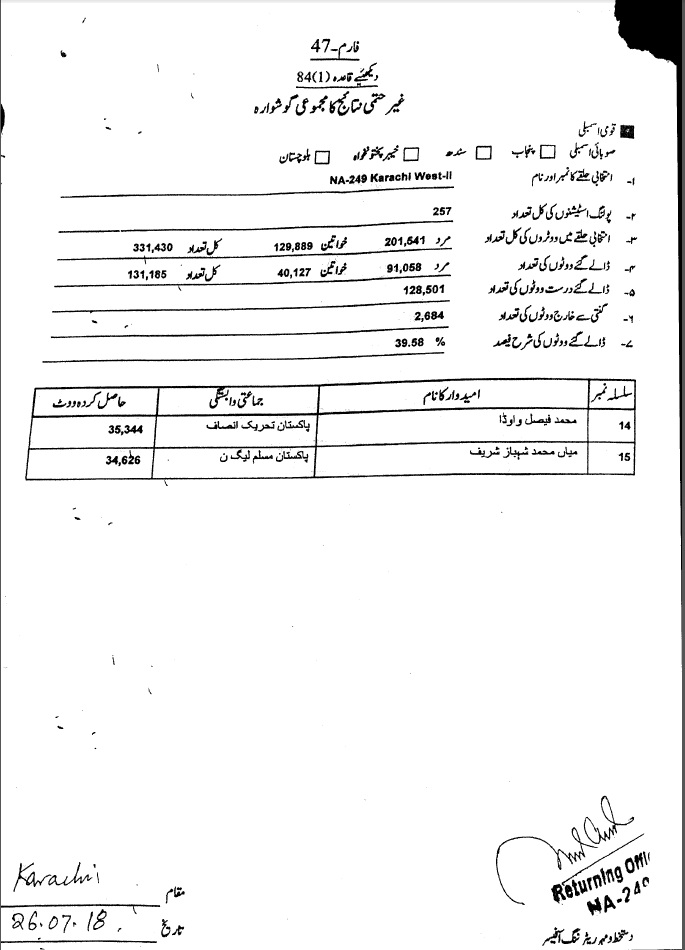 فارم-47
دیکھیے قاعدہ 84(1)
غیر حتمی نتائج کا مجموعی گوشوارہ
قومی اسمبلی
صوبائی اسمبلی پنجاب سندھ خیبر پختونخواہ بلوچستان
۱- انتخابی حلقے کا نمبر اور نام NA-249 Karachi West-II
۲- پولنگ اسٹیشنوں کی کل تعداد 257
۳- انتخابی حلقے میں ووٹروں کی کل تعداد مرد 201,541 خواتین 129,889 کل تعداد 331,430
۴- ڈالے گئے ووٹوں کی تعداد مرد 91,058 خواتین 40,127 کل تعداد 131,185
۵- ڈالے گئے درست ووٹوں کی تعداد 128,501
۶- گنتی سے خارج ووٹوں کی تعداد 2,684
۷- ڈالے گئے ووٹوں کی شرح فیصد 39.58 %
سلسلہ نمبر امیدوار کا نام جماعتی وابستگی حاصل کردہ ووٹ
14 محمد فیصل واوڈا پاکستان تحریک انصاف 35,344
15 میاں محمد شہباز شریف پاکستان مسلم لیگ ن 34,626
Returning Offi
NA-249
مقام Karachi
تاریخ 26.07.18.
دستخط و مہر ریٹرننگ آفیسر